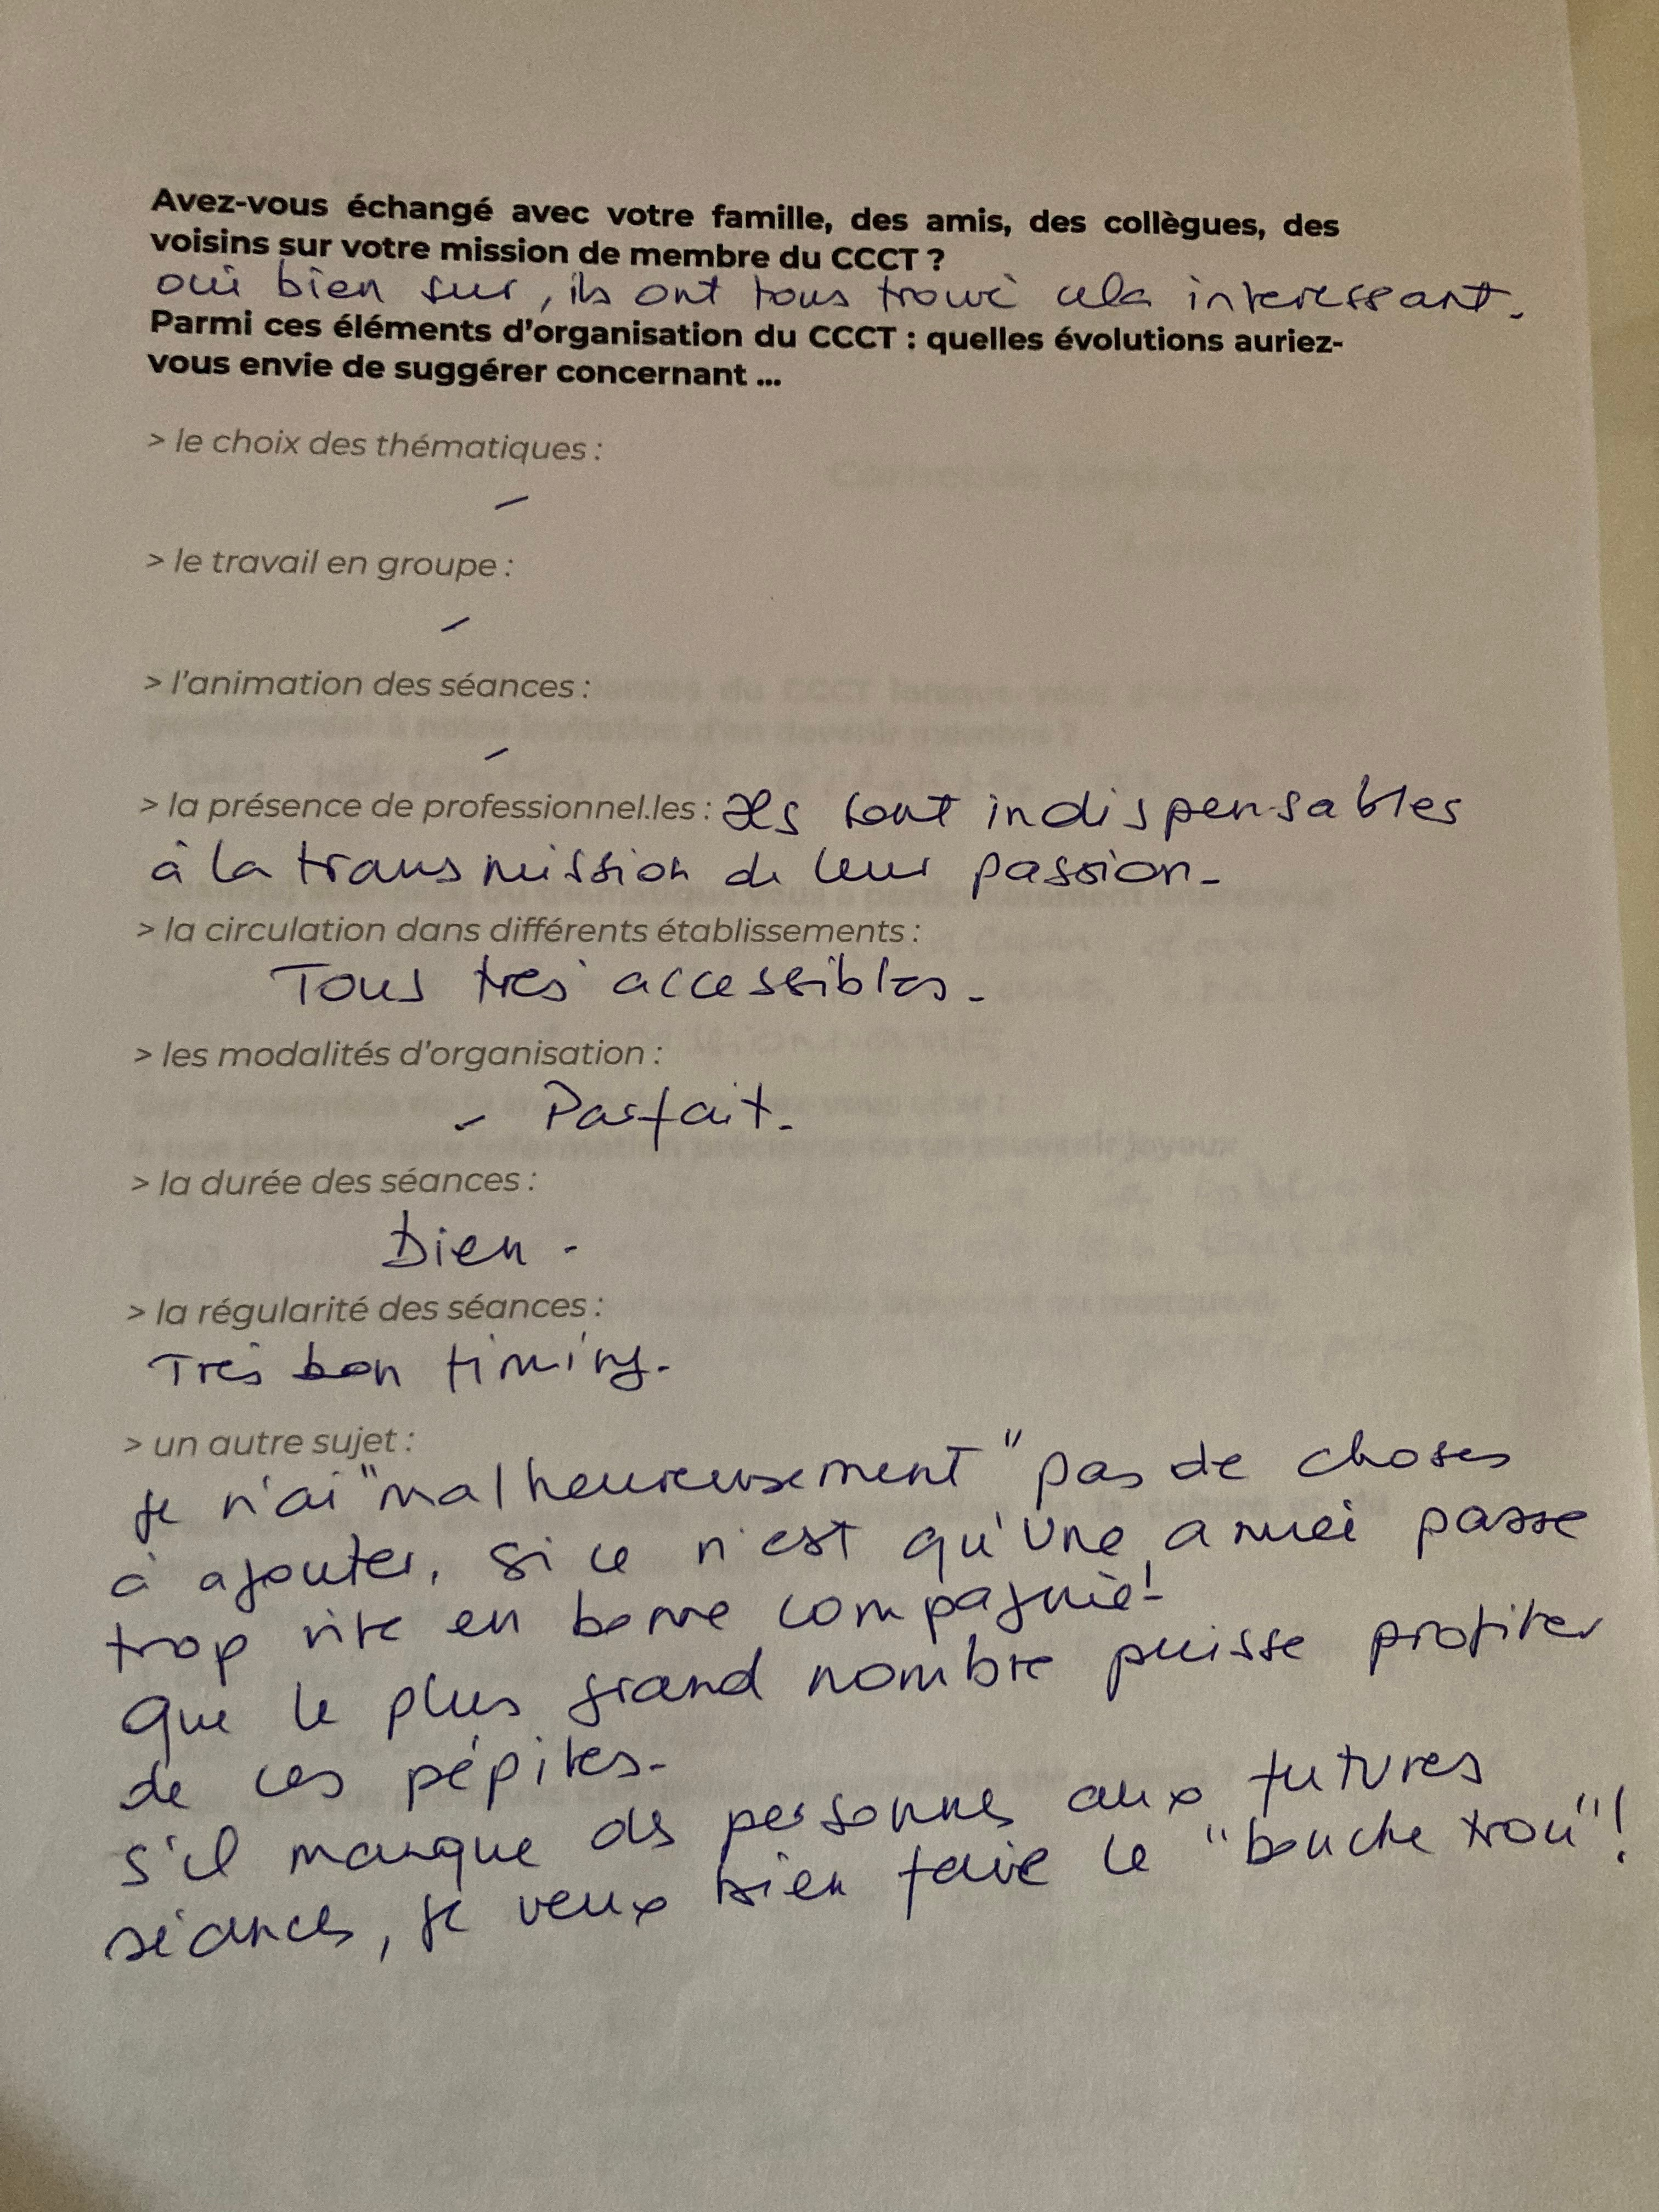 Avez-vous échangé avec votre famille, des amis, des collègues, des
voisins sur votre mission de membre du CCCT ?
oui bien sur, ils ont tous trouvé cela interessant.
Parmi ces éléments d'organisation du CCCT : quelles évolutions auriez-
vous envie de suggérer concernant ...
> le choix des thématiques :
-
> le travail en groupe :
-
> l'animation des séances :
-
> la présence de professionnel.les : Ils sont indispensables
à la transmission de leur passion.
> la circulation dans différents établissements :
Tous très accessibles.
> les modalités d'organisation :
- Parfait.
> la durée des séances :
Bien -
> la régularité des séances :
Très bon timing.
> un autre sujet :
Je n'ai "malheureusement" pas de choses
à ajouter, si ce n'est qu'une année passe
trop vite en bonne compagnie!
Que le plus grand nombre puisse profiter
de ces pépites.
S'il manque des personnes aux futures
séances, je veux bien faire le "bouche trou"!